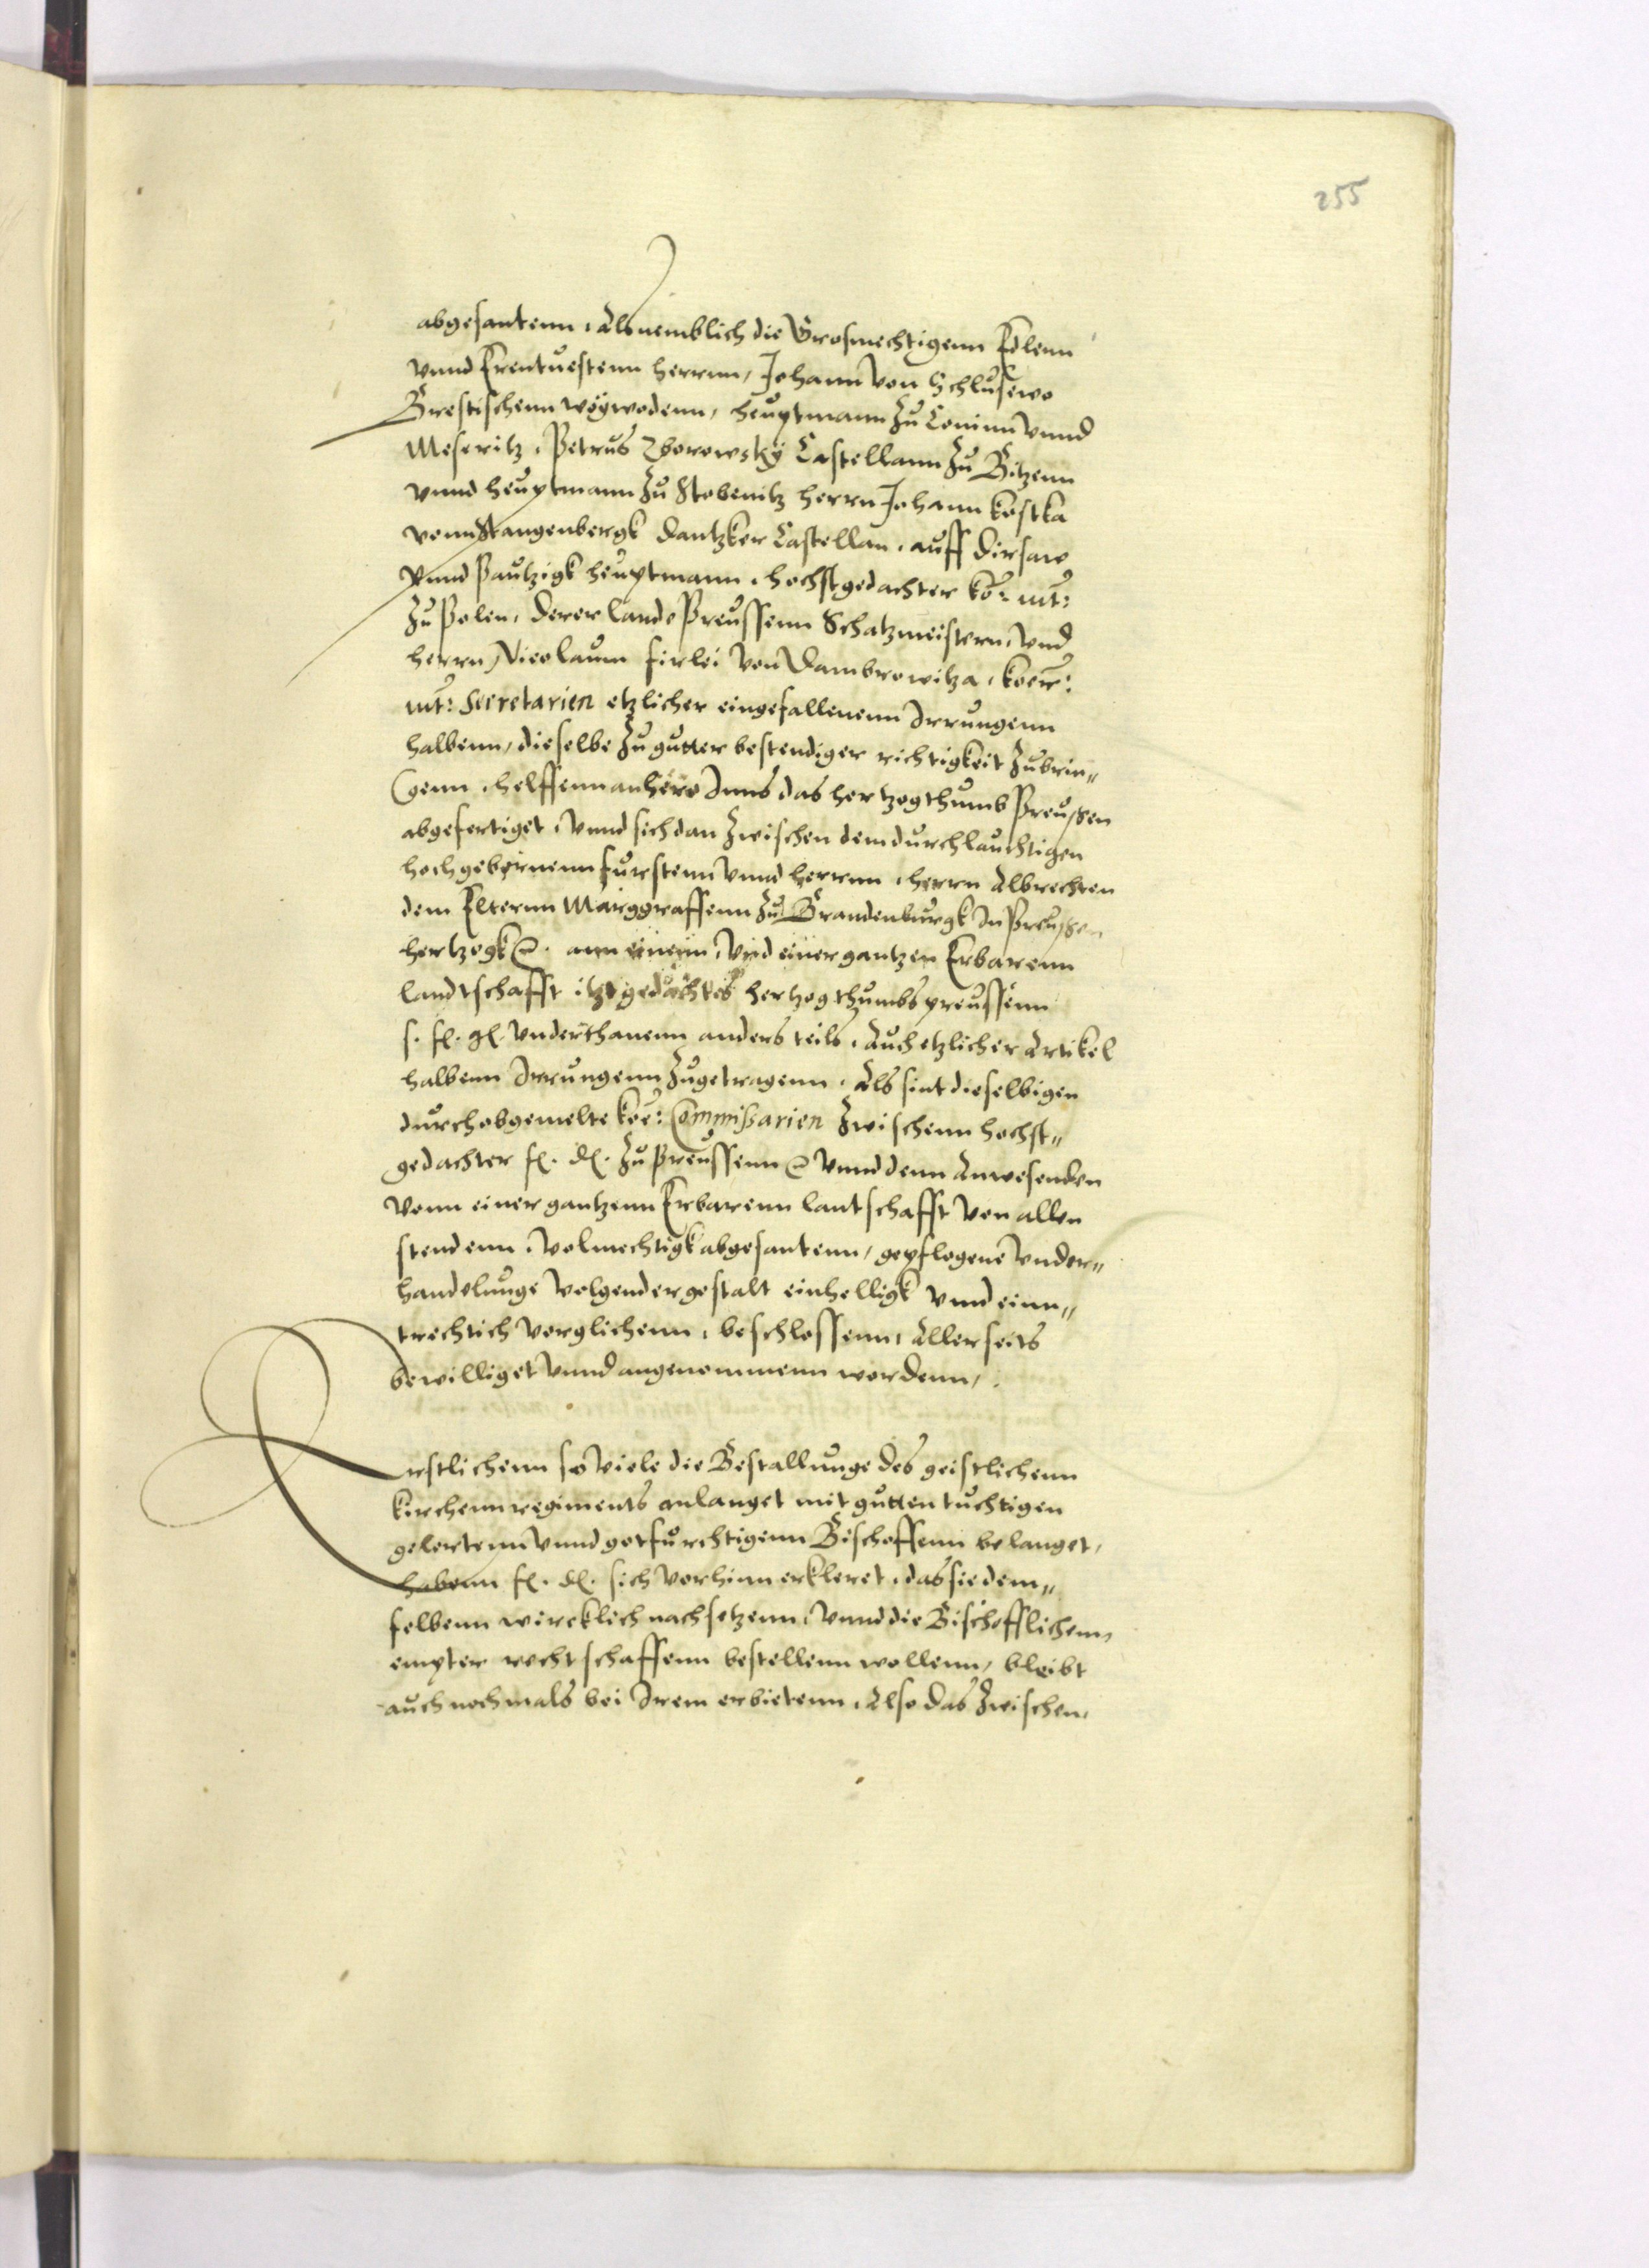 255
abgesantenn, Als nemblich die Grosmechtigenn Edlenn
vnnd Erentuestenn herrnn, Johann von Schlusewo
Brestischenn woywodenn, heuptmann zu Coninn vnnd
Meseritz, Petrus Zborowsky Castellann zu Bitzenn
vnnd heuptmann zu Stobenitz herrn Johann Kostka
vonn Stangenbergk Dantzker Castellan, auff Dirsaw
vnnd Pautzigk heuptmann, hochstgedachter Ko: Mt:
zu Polen, derer lande Preussenn Schatzmeistern, vnd
herrn, Nicolaum Firlei von Dambrowitza, Koer:
Mt: Secretarien etzlicher eingefallenenn Irrungenn
halbenn, dieselbe zu gutter bestendiger richtigkeit zubrin„
genn, helffenn anhero Inns das hertzogthumb Preußen
abgefertiget, vnnd sich dan zwischen dem durchlauchtigen
hochgebornenn furstenn vnnd herrnn, herrn Albrechten
dem Elternn Marggraffenn zu Brandenburgk In Preußen
hertzogk &. ann einem, vnd einer gantzen Erbarenn
landtschafft itzt gedachtes hertzogthumbs preussenn
s. fl. gl. vnderthanenn anders teils, Auch etzlicher Artikel
halbenn Irrungenn zugetragenn, Als sint dieselbigen
durch obgemelte Koe: Commißarien zwischenn hochst„
gedachter fl. dl. zu Preussenn & vnnd denn Anwesenden
vonn einer gantzenn Erbarenn lantschafft von allen
stendenn, volmechtigk abgesantenn, gepflogene vnder„
handelunge volgender gestalt einhelligk vnnd einn„
trechtich vorglichenn, beschlossenn, Allerseits
bewilliget vnnd angenommenn wordenn,
Erstlichenn so viele die Bestallunge des geistlichenn
kirchennregiments anlanget mit gutten tuchtigen
gelertenn vnnd gotfurchtigenn Bischoffenn belanget,
habenn fl. dl. sich vorhinn erkleret, das sie dem„
selbenn wircklich nachsetzenn, vnnd die Bischofflichenn
empter rechtschaffenn bestellenn wollenn, bleibt
auch nochmals bei Irem erbietenn, Also das zwischen